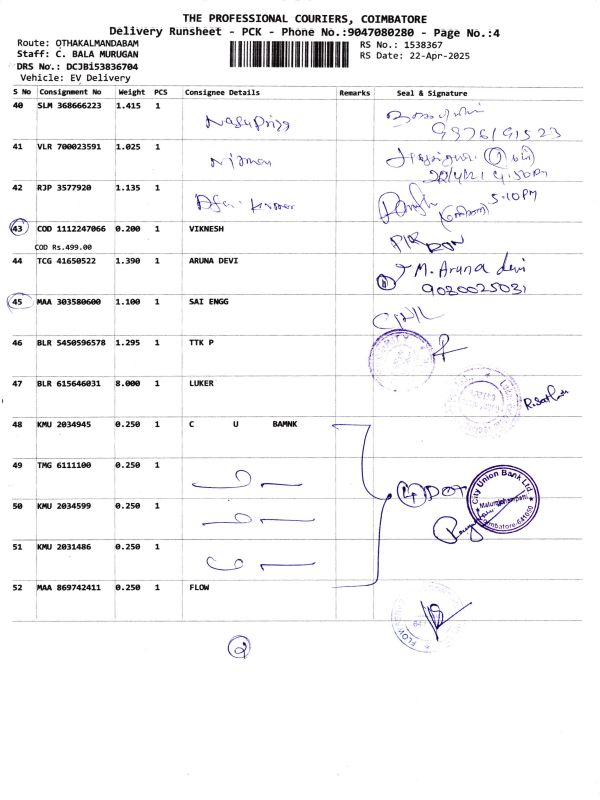 THE PROFESSIONAL COURIERS, COIMBATORE
Delivery Runsheet - PCK - Phone No.:9047080280 - Page No.:4
Route: OTHAKALMANDABAM RS No.: 1538367
Staff: C. BALA MURUGAN RS Date: 22-Apr-2025
DRS No.: DCJBI53836704
Vehicle: EV Delivery
S No Consignment No Weight PCS Consignee Details Remarks Seal & Signature
40 SLM 368666223 1.415 1
41 VLR 700023591 1.025 1
Nirman
42 RJP 3577920 1.135 1
5.10PM
43 COD 1112247066 0.200 1 VIKNESH
COD Rs.499.00
44 TCG 41650522 1.390 1 ARUNA DEVI
M. Aruna devi
9080025031
45 MAA 303580600 1.100 1 SAI ENGG
46 BLR 5450596578 1.295 1 TTK P
47 BLR 615646031 8.000 1 LUKER
48 KMU 2034945 0.250 1 C U BAMNK
49 TMG 6111100 0.250 1
4 DOT
City Union Bank Ltd
50 KMU 2034599 0.250 1
51 KMU 2031486 0.250 1
52 MAA 869742411 0.250 1 FLOW
2